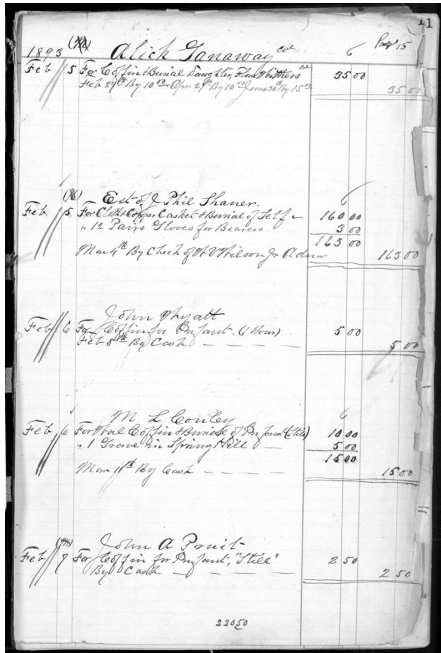 1893 Alick Ganaway col 6 Pag 15
Feb 5 For Coffin & Burial Daughter, Flora Withers col 35 00
Feb 27th By 10 00 Apr 29 By 10 00 June 30th By 15 00 35 00
Est of J Phil Shaner. 6
Feb 5 For Cloth Copper Casket & Burial of Self 160 00
" 12 Pairs Gloves for Bearers 3 00
163 00
Mar 4th By Check of W Wilson Jr Admr 163 00
John Wyatt
Feb 6 For Coffin for Infant (1 Hour) 5 00
Feb 8th By Cash 5 00
M L Conley 6
Feb 6 For Oval Coffin & Burial of Infant (Still) 10 00
" 1 Grave in Spring Hill 5 00
15 00
Mar 11th By Cash 15 00
John A Pruit
Feb 7 For Coffin for Infant, "Still" 2 50
By Cash 2 50
22050